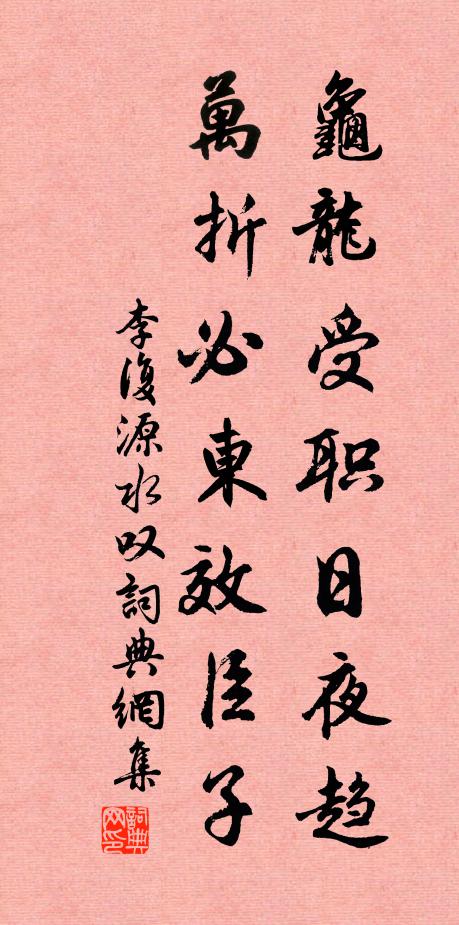 龜龍受职日夜趋
萬折必東效臣子
李復源水叹詞典網集
詞典网印